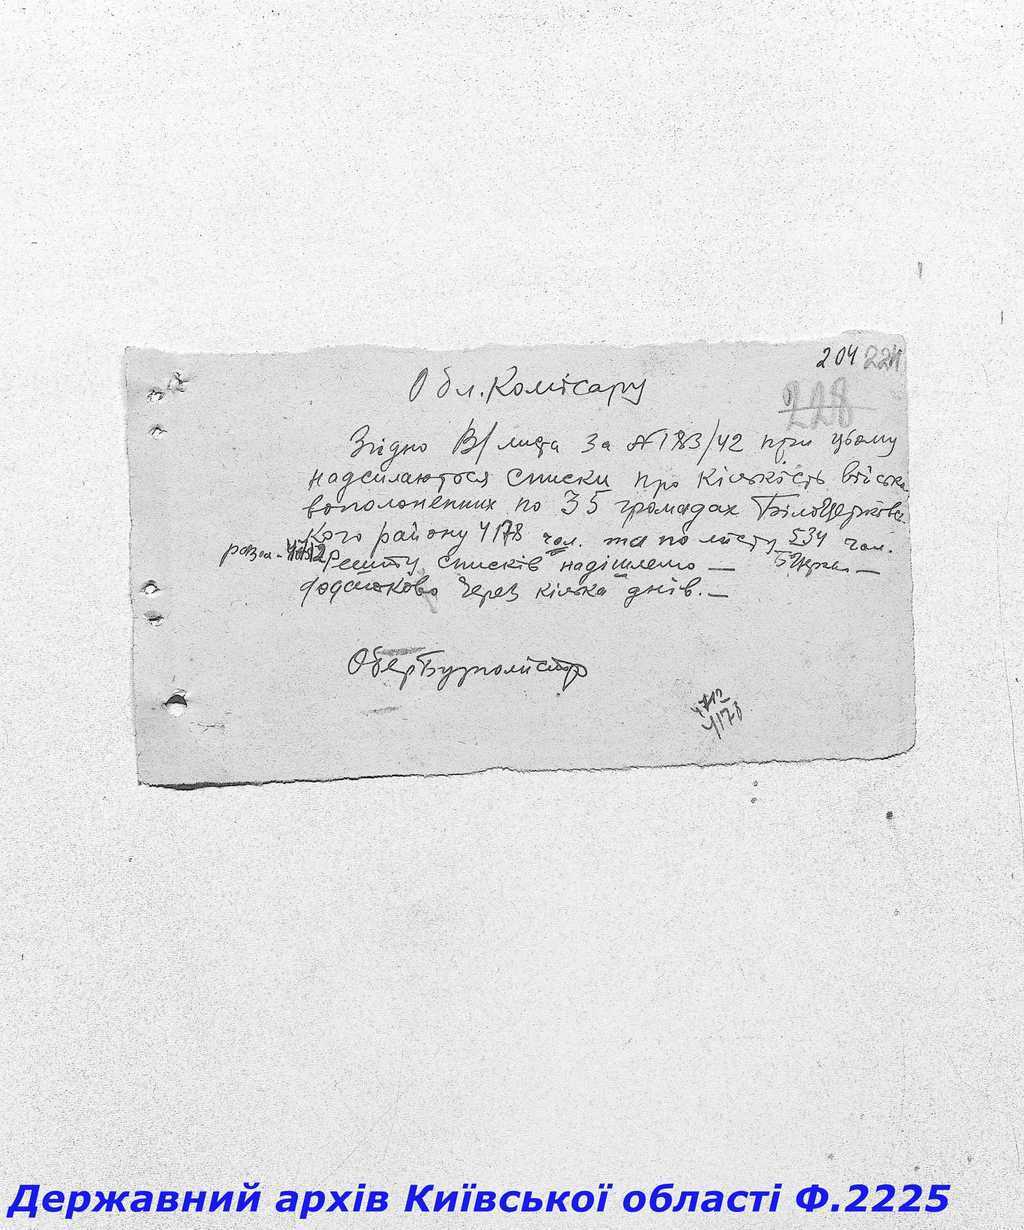 204 224
228
Обл. Комісару
Згідно В/листа за №183/42 при цьому
надсилаються списки про кількість війсьқо
вополонених по 35 громадах Білоцерківсь
кого району 4178 чол. та по місту 534 чол.
разом - 4712 Решту списків надішлемо — Б Церкв —
додатково через кілька днів. —
ОберБургомістр
4712
4178
Державний архів Київської області Ф.2225